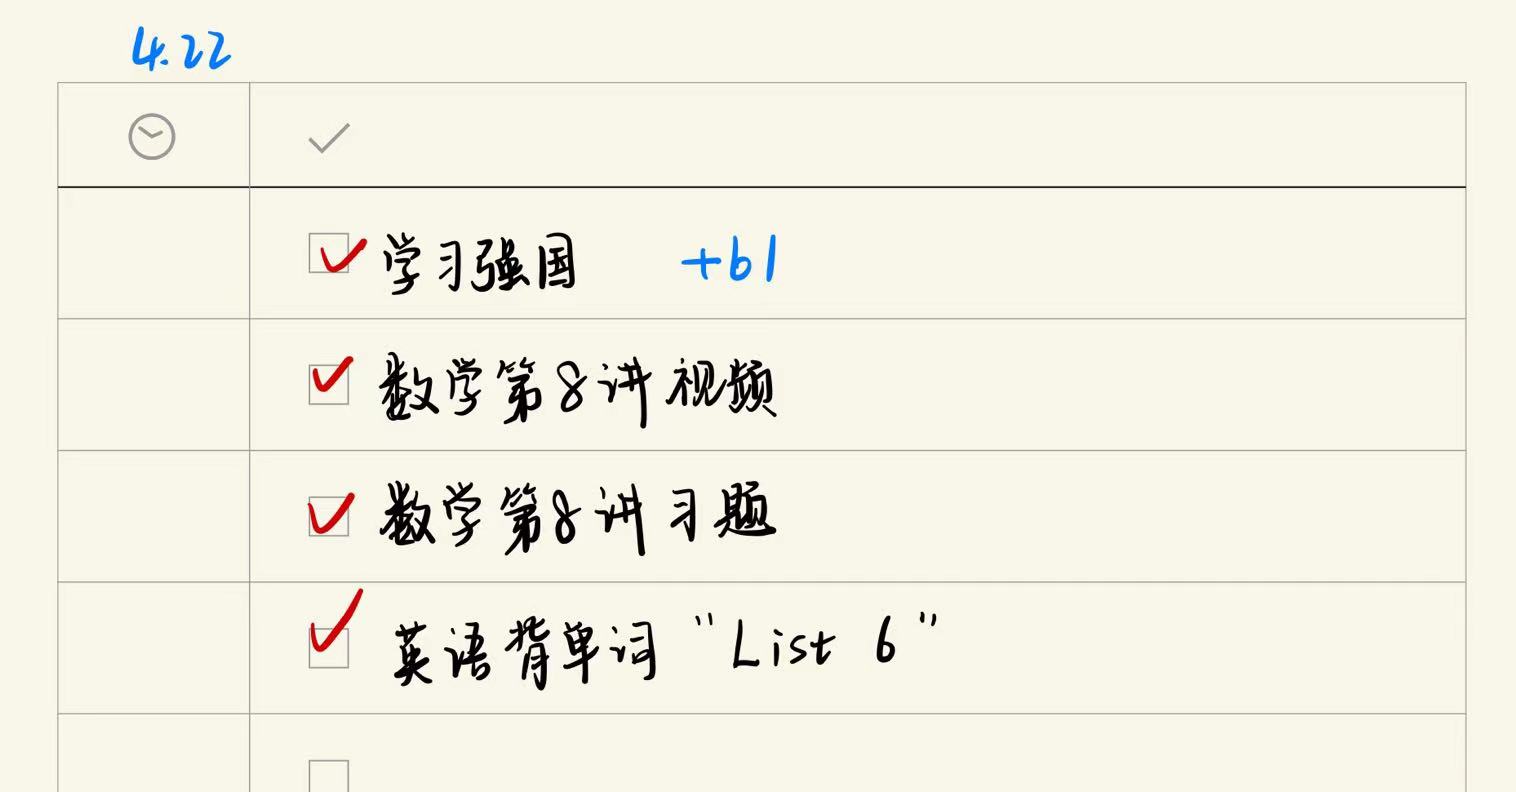 4.22
学习强国 +61
数学第8讲视频
数学第8讲习题
英语背单词 "List 6"